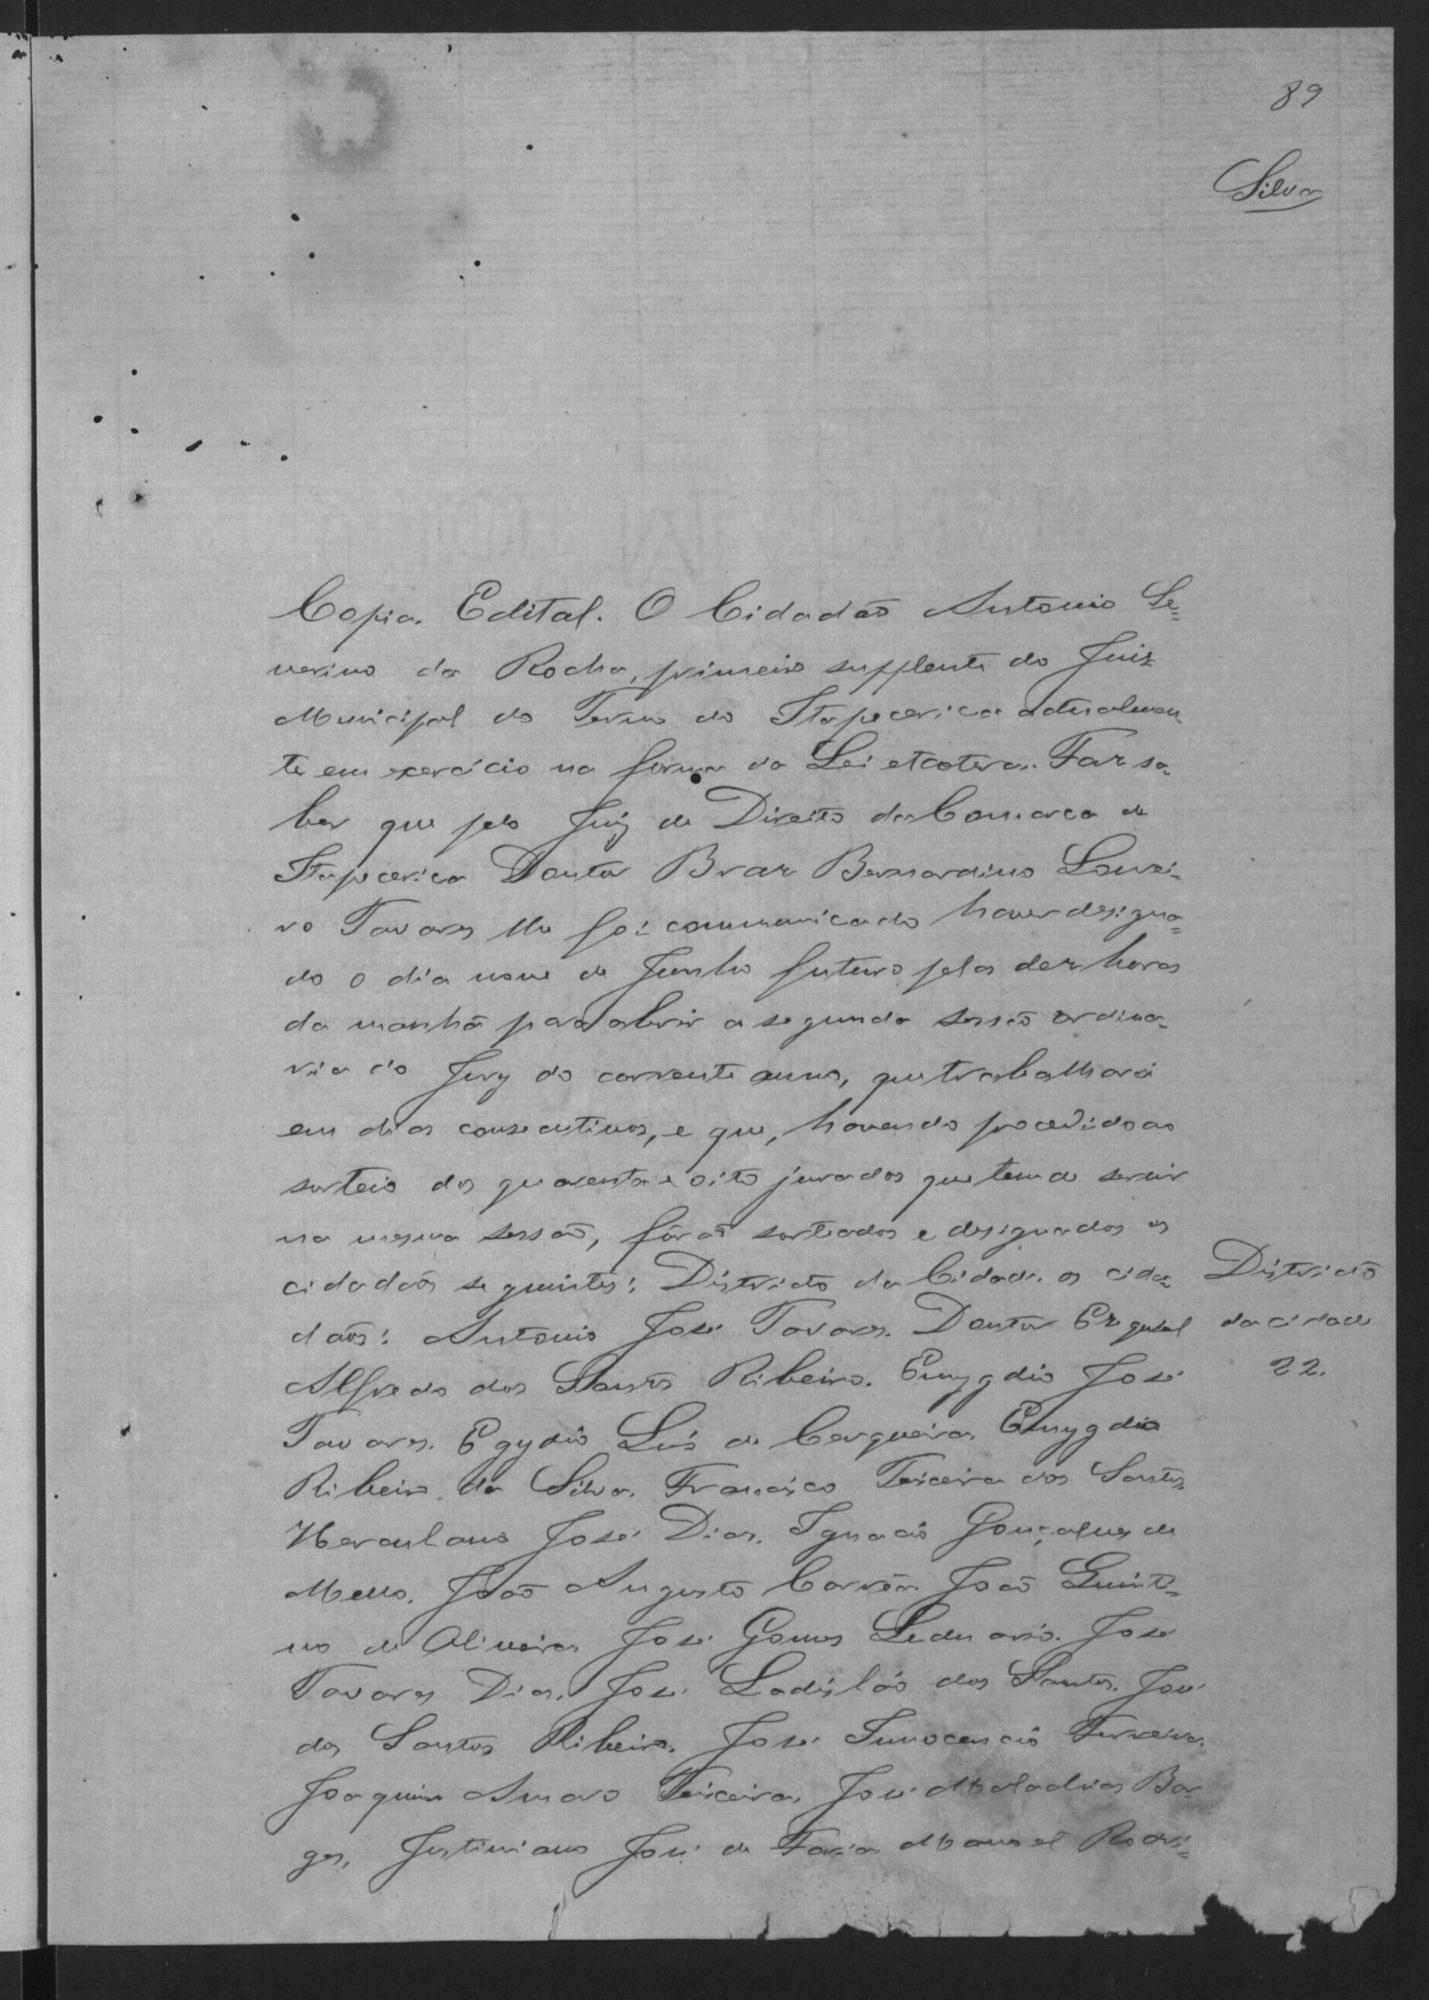 89
Silva
Copia. Edital. O Cidadão Antonio Se=
verino da Rocha, primeiro supplente do Juiz
Municipal do Termo de Itapecerica actualmen-
te em exercicio na forma da Lei etcetera. Faz sa-
ber que pelo Juiz de Direito da Comarca de
Itapecerica Doutor Braz Bernardino Lourei-
ro Tavares lhe foi communicado haver designa=
do o dia nove de Junho futuro pelas dez horas
da manhã para abrir a segunda sessão ordina-
ria do Jury do corrente anno, que trabalhará
em dias consecutivos, e que, havendo procedido ao
sorteio dos quarenta e oito jurados que tem de servir
na mesma sessão, fôrão sorteados e designados os
cidadãos seguintes: Districto da Cidade. os cida-
dãos: Antonio José Tavares. Doutor Ezequiel
Districto
da cidade
22.
Alfredo dos Santos Ribeiro. Emygdio José
Tavares. Egydio Luis de Cerqueira. Emygdio
Ribeiro da Silva. Francisco Teixeira dos Santos.
Herculano José Dias. Ignacio Gonçalves de
Mello. João Augusto Corrêa. João Quinti-
no de Oliveira. José Gomes Leduario. José
Tavares Dias. José Ladisláo dos Santos. José
dos Santos Ribeiro. José Innocencio Ferreira.
Joaquim Amaro Teixeira. José Maladias Bor-
ges. Justiniano José de Faria. Manoel Rodri=